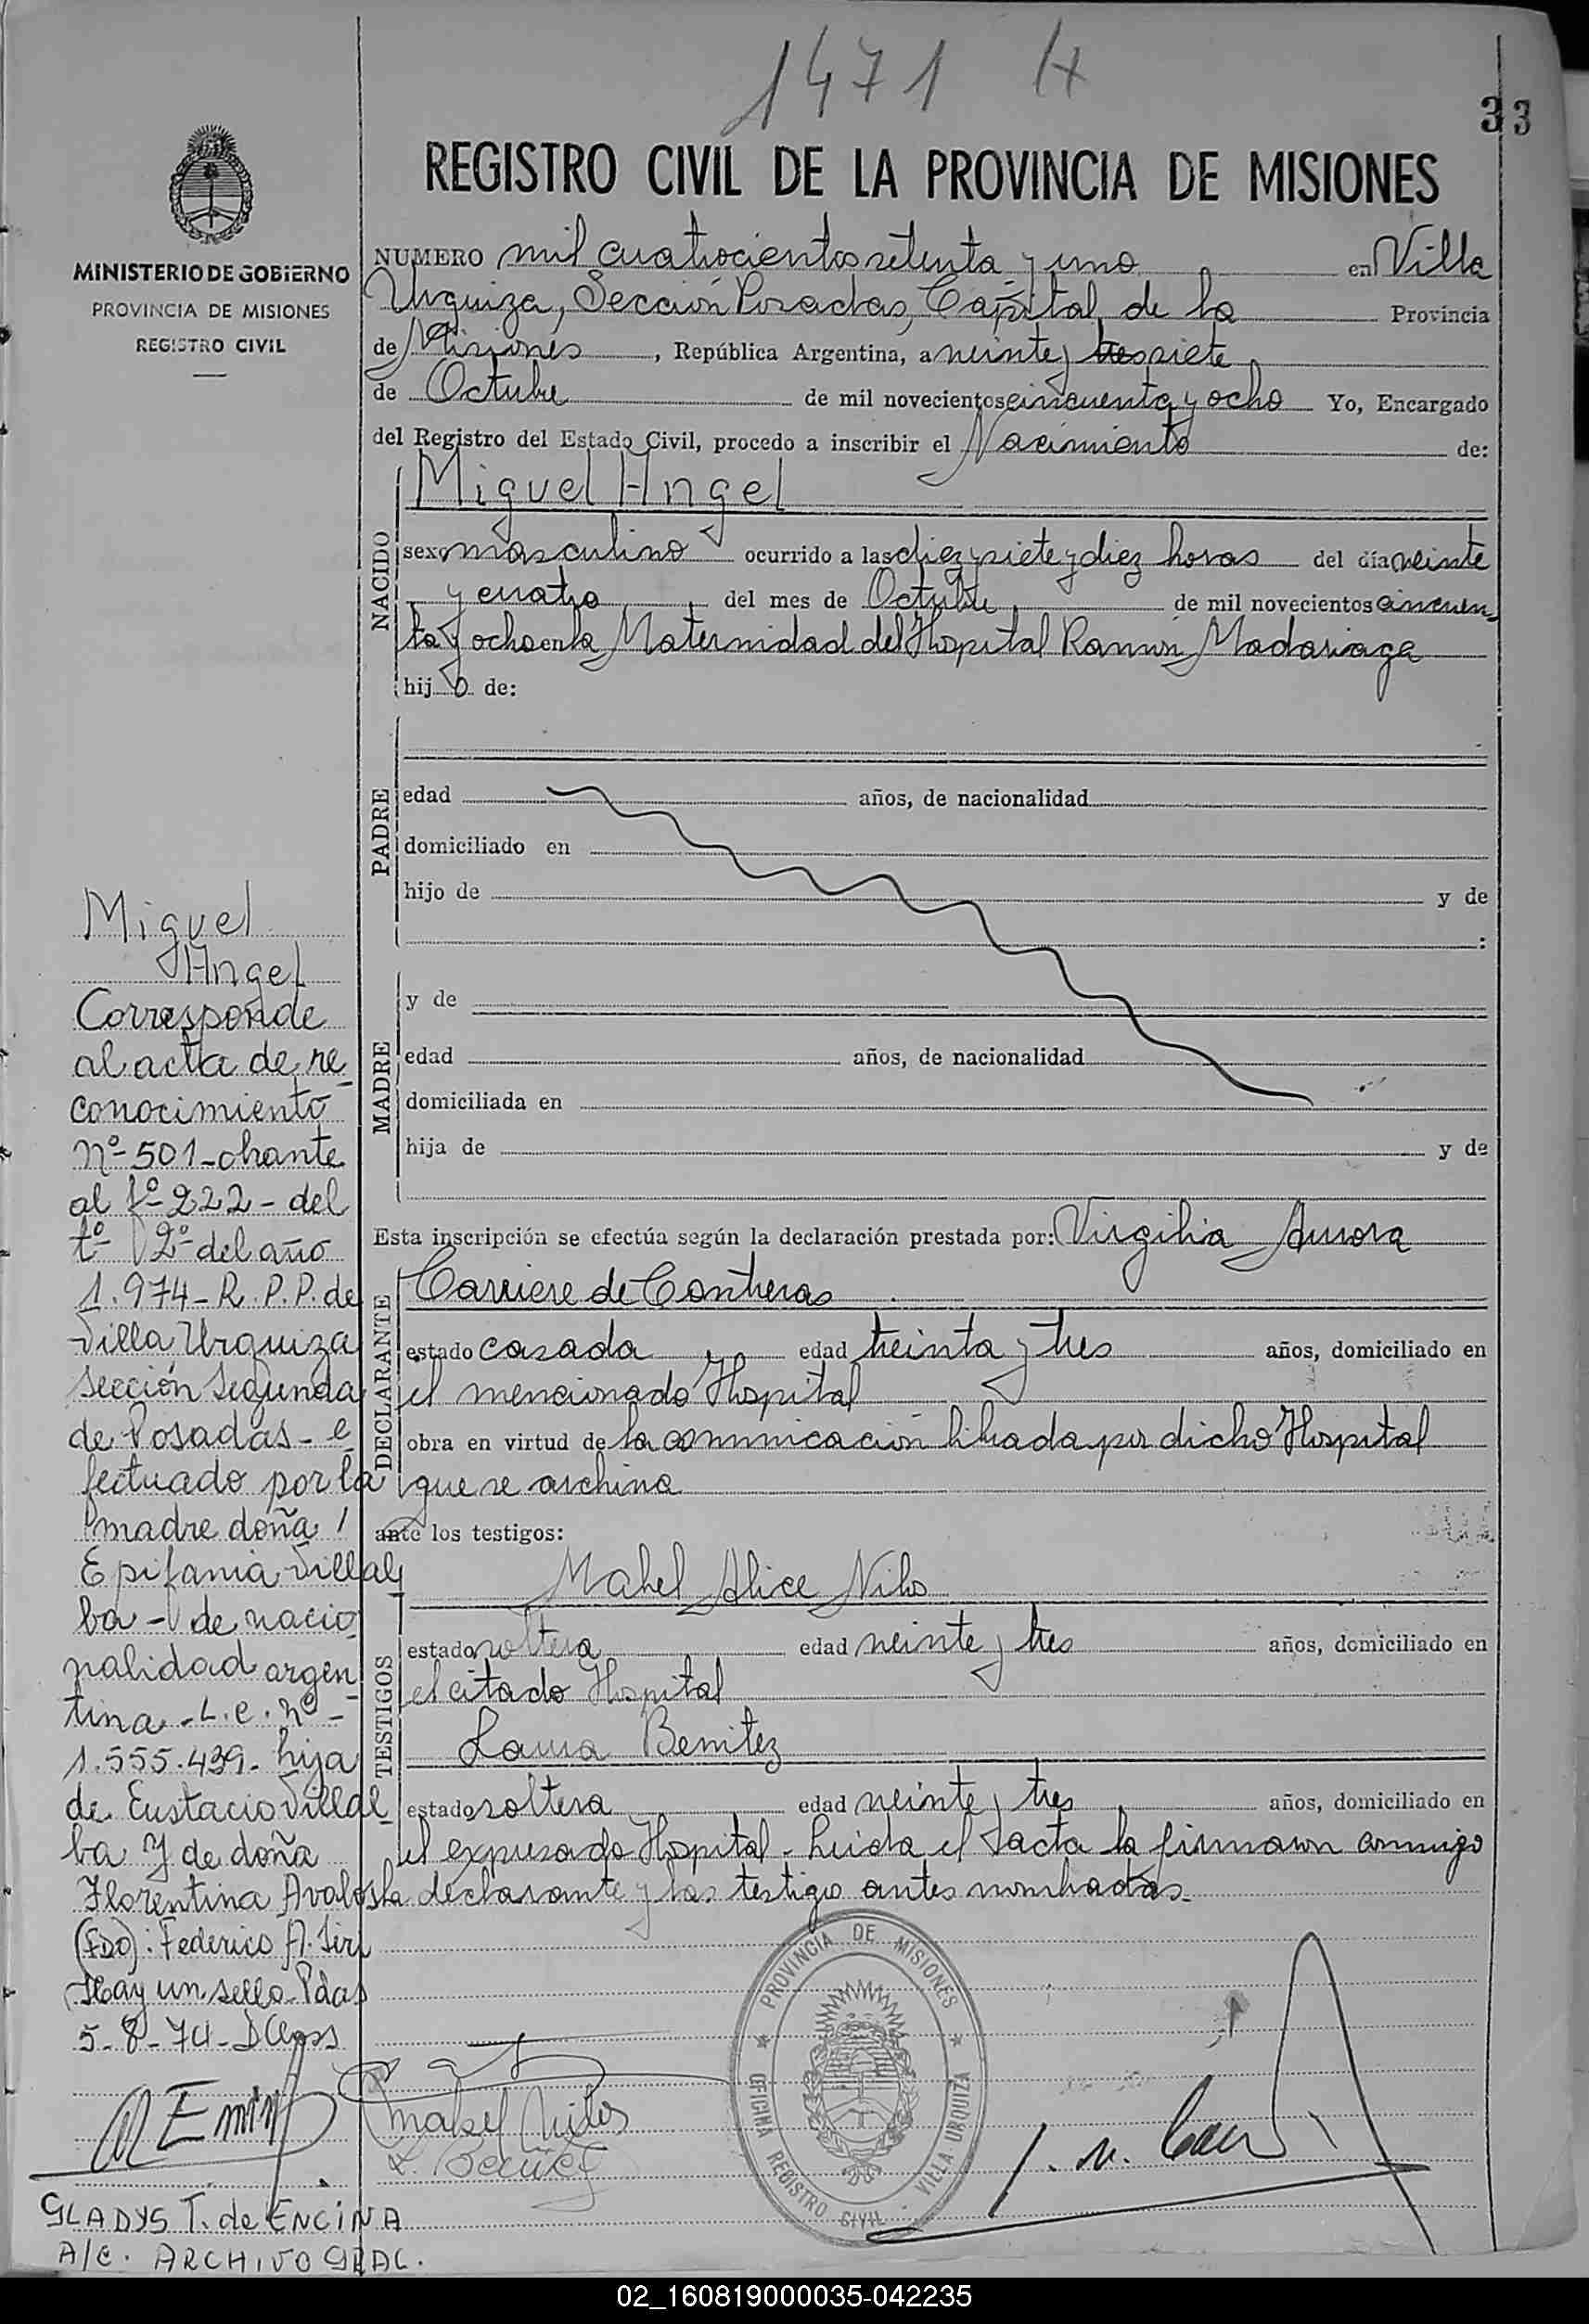 1471 H
33
REGISTRO CIVIL DE LA PROVINCIA DE MISIONES
MINISTERIO DE GOBIERNO
PROVINCIA DE MISIONES
REGISTRO CIVIL
NUMERO mil cuatrocientos setenta y uno en Villa
Urquiza, Sección Posadas, Capital de la Provincia
de Misiones, República Argentina, a veinte y tres siete
de Octubre de mil novecientos cincuenta y ocho Yo, Encargado
del Registro del Estado Civil, procedo a inscribir el Nacimiento de:
NACIDO
Miguel Angel
sexo masculino ocurrido a las diez y siete y diez horas del día veinte
y cuatro del mes de Octubre de mil novecientos cincuen
ta y ocho en la Maternidad del Hospital Ramón Madariaga
hijo de:
PADRE
edad años, de nacionalidad
domiciliado en
hijo de y de
:
MADRE
y de
edad años, de nacionalidad
domiciliada en
hija de y de
Esta inscripción se efectúa según la declaración prestada por: Virgilia Aurora
DECLARANTE
Carriere de Contreras
estado casada edad treinta y tres años, domiciliado en
el mencionado Hospital
obra en virtud de la comunicación librada por dicho Hospital
que se archiva
ante los testigos:
TESTIGOS
Mabel Alice Nilo
estado soltera edad veinte y tres años, domiciliado en
el citado Hospital
Laura Benitez
estado soltera edad veinte y tres años, domiciliado en
el expresado Hospital. Leida el acta la firmaron conmigo
la declarante y las testigo antes nombradas.
Miguel
Angel
Corresponde
al acta de re
conocimiento
Nº 501 - obrante
al fº 222 - del
tº 2º del año
1.974 - R.P.P. de
Villa Urquiza
Sección Segunda
de Posadas - e
fectuado por la
madre doña
Epifania Villal
ba - de nacio
nalidad argen
tina - L.C. nº -
1.555.439 - hija
de Eustacio Villal
ba y de doña
Florentina Avalos
(FDO): Federico A.
Hay un sello. Pdas
5-8-74 -
GLADYS T. de ENCINA
A/C. ARCHIVO GRAL.
Mabel
L. Benitez
PROVINCIA DE MISIONES
OFICINA REGISTRO CIVIL - VILLA URQUIZA
02_160819000035-042235